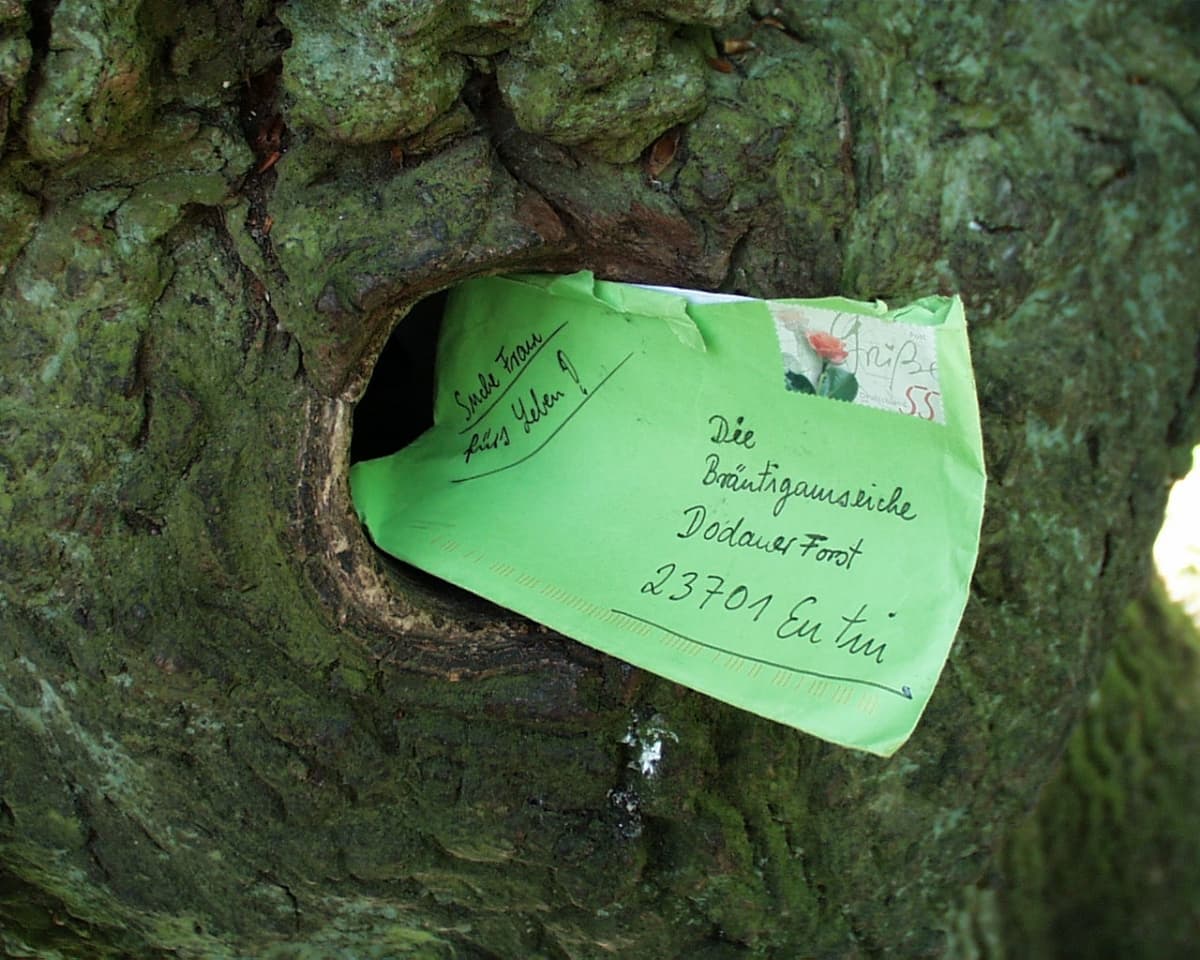 Suche Frau
fürs Leben!
Grüße
55
Die
Bräutigamseiche
Dodauer Forst
23701 Eutin